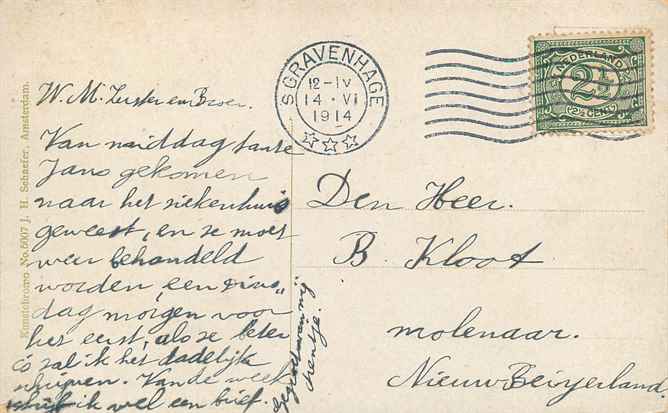 Kunstchromo No. 5007 J. H. Schaefer, Amsterdam.
W. M. Zuster en Broer.
Van middag tante
Jans gekomen
naar het siekenhuis
geweest, en se moet
weer behandeld
worden, een dins"
dag morgen voor
het eerst, als se beter
is zal ik het dadelijk
schrijven. Van de week
schrijf ik wel een brief.
Gegroet van mij
Jrentje
'SGRAVENHAGE
12-IV
14 · VI
1914
NEDERLAND
2½
2½ CENT
Den Heer.
B. Kloot
molenaar.
Nieuw Beijerland